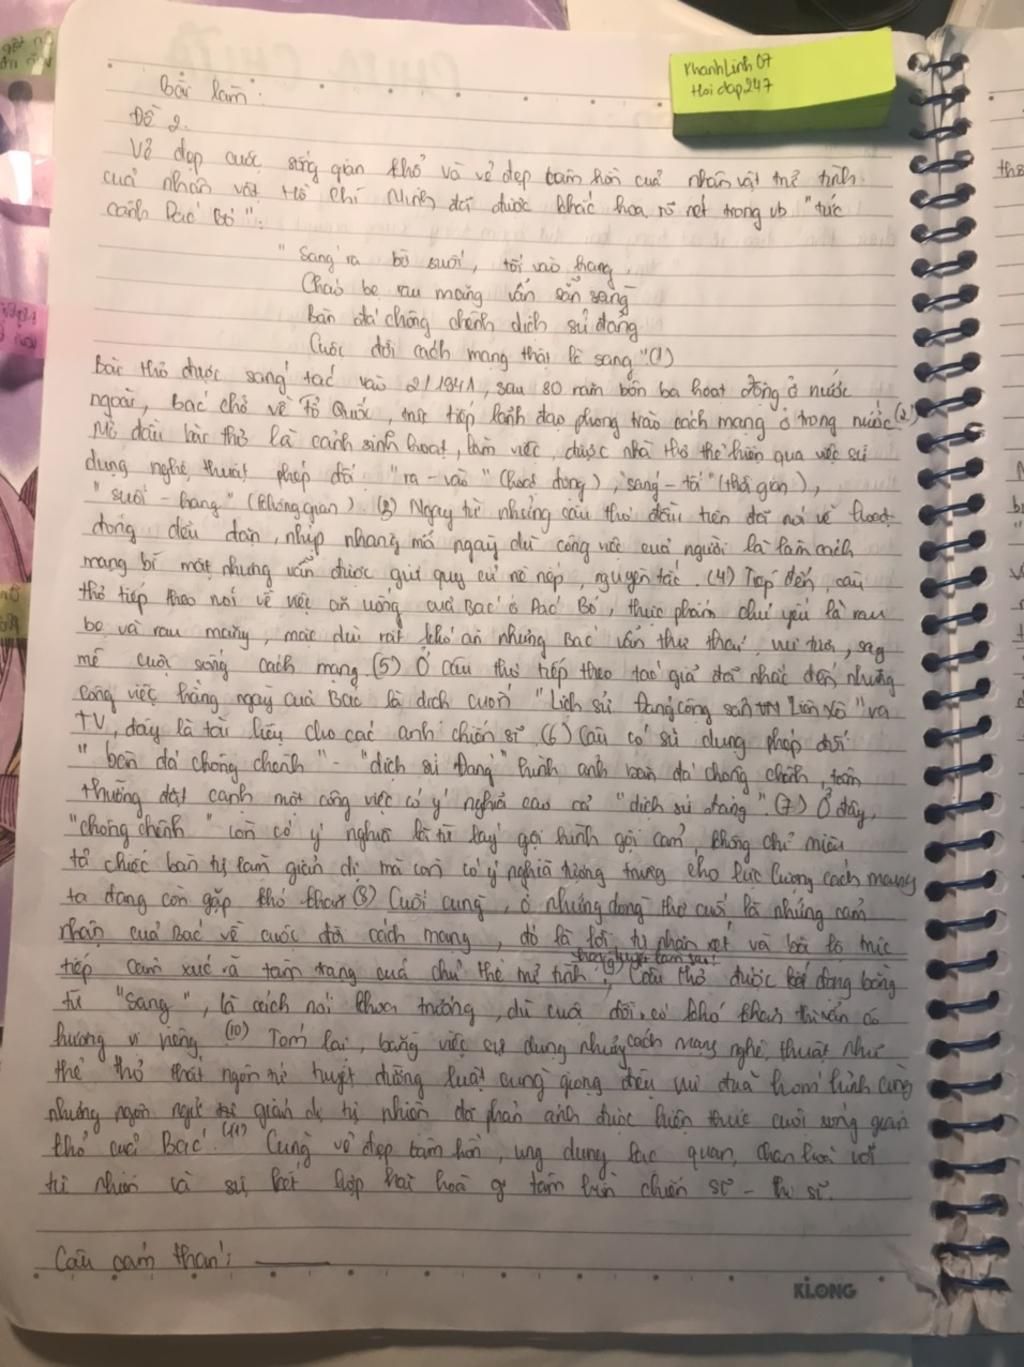 KhanhLinh07
Hoidap247
Bài làm:
Đề 2.
Vẻ đẹp cuộc sống gian khổ và vẻ đẹp tâm hồn của nhân vật trữ tình
của nhân vật Hồ Chí Minh đã được khắc họa rõ nét trong vb "tức
cảnh Pác Bó":
"Sáng ra bờ suối, tối vào hang
Cháo bẹ rau măng vẫn sẵn sàng
Bàn đá chông chênh dịch sử đảng
Cuộc đời cách mạng thật là sang"(1)
Bài thơ được sáng tác vào 2/1941, sau 30 năm bôn ba hoạt động ở nước
ngoài, Bác trở về Tổ Quốc, trực tiếp lãnh đạo phong trào cách mạng ở trong nước.(2)
Mở đầu bài thơ là cảnh sinh hoạt, làm việc, được nhà thơ thể hiện qua việc sử
dụng nghệ thuật phép đối "ra - vào" (hoạt động), "sáng - tối" (thời gian),
"suối - hang" (không gian). (3) Ngay từ những câu thơ đầu tiên đã nói về hoạt
động đều đặn, nhịp nhàng mỗi ngày dù công việc của người là làm cách
mạng bí mật nhưng vẫn được giữ quy củ nề nếp, nguyên tắc. (4) Tiếp đến, câu
thơ tiếp theo nói về việc ăn uống của Bác ở Pác Bó, thực phẩm chủ yếu là rau
bẹ và rau măng, mặc dù rất khó ăn nhưng Bác vẫn thư thái, vui tươi, say
mê cuộc sống cách mạng.(5) Ở câu thơ tiếp theo tác giả đã nhắc đến những
công việc hằng ngày của Bác là dịch cuốn "Lịch sử Đảng cộng sản Liên Xô" ra
TV, đây là tài liệu cho các anh chiến sĩ.(6) Câu có sử dụng phép đối
"bàn đá chông chênh" - "dịch sử Đảng" hình ảnh bàn đá chông chênh, tầm
thường đặt cạnh một công việc có ý nghĩa cao cả "dịch sử đảng".(7) Ở đây,
"chông chênh" còn có ý nghĩa là từ láy gợi hình gợi cảm, không chỉ miêu
tả chiếc bàn tự làm giản dị mà còn có ý nghĩa tượng trưng cho lực lượng cách mạng
ta đang còn gặp khó khăn.(8) Cuối cùng, ở những dòng thơ cuối, là những cảm
nhận của Bác về cuộc đời cách mạng, đó là lời tự nhận xét và bộc lộ trực
tiếp cảm xúc và tâm trạng của chủ thể trữ tình (9) Câu thơ được kết đọng bằng
từ "Sang", là cách nói khoa trương, dù cuộc đời có khó khăn thì vẫn có
hương vị riêng. (10) Tóm lại, bằng việc sử dụng những cách mạng nghệ thuật như
thể thơ thất ngôn tứ tuyệt đường luật cùng giọng điệu vui đùa hóm hỉnh cùng
những ngôn ngữ giản dị tự nhiên đã phản ánh được hiện thực cuộc sống gian
khổ của Bác.(11) Cùng vẻ đẹp tâm hồn, ung dung lạc quan, chan hoà với
tự nhiên và sự kết hợp hài hoà gi tâm hồn chiến sĩ - thi sĩ.
Câu cảm thán:
KLONG